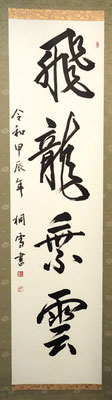 飛龍乗雲
令和甲辰年 桐雪書